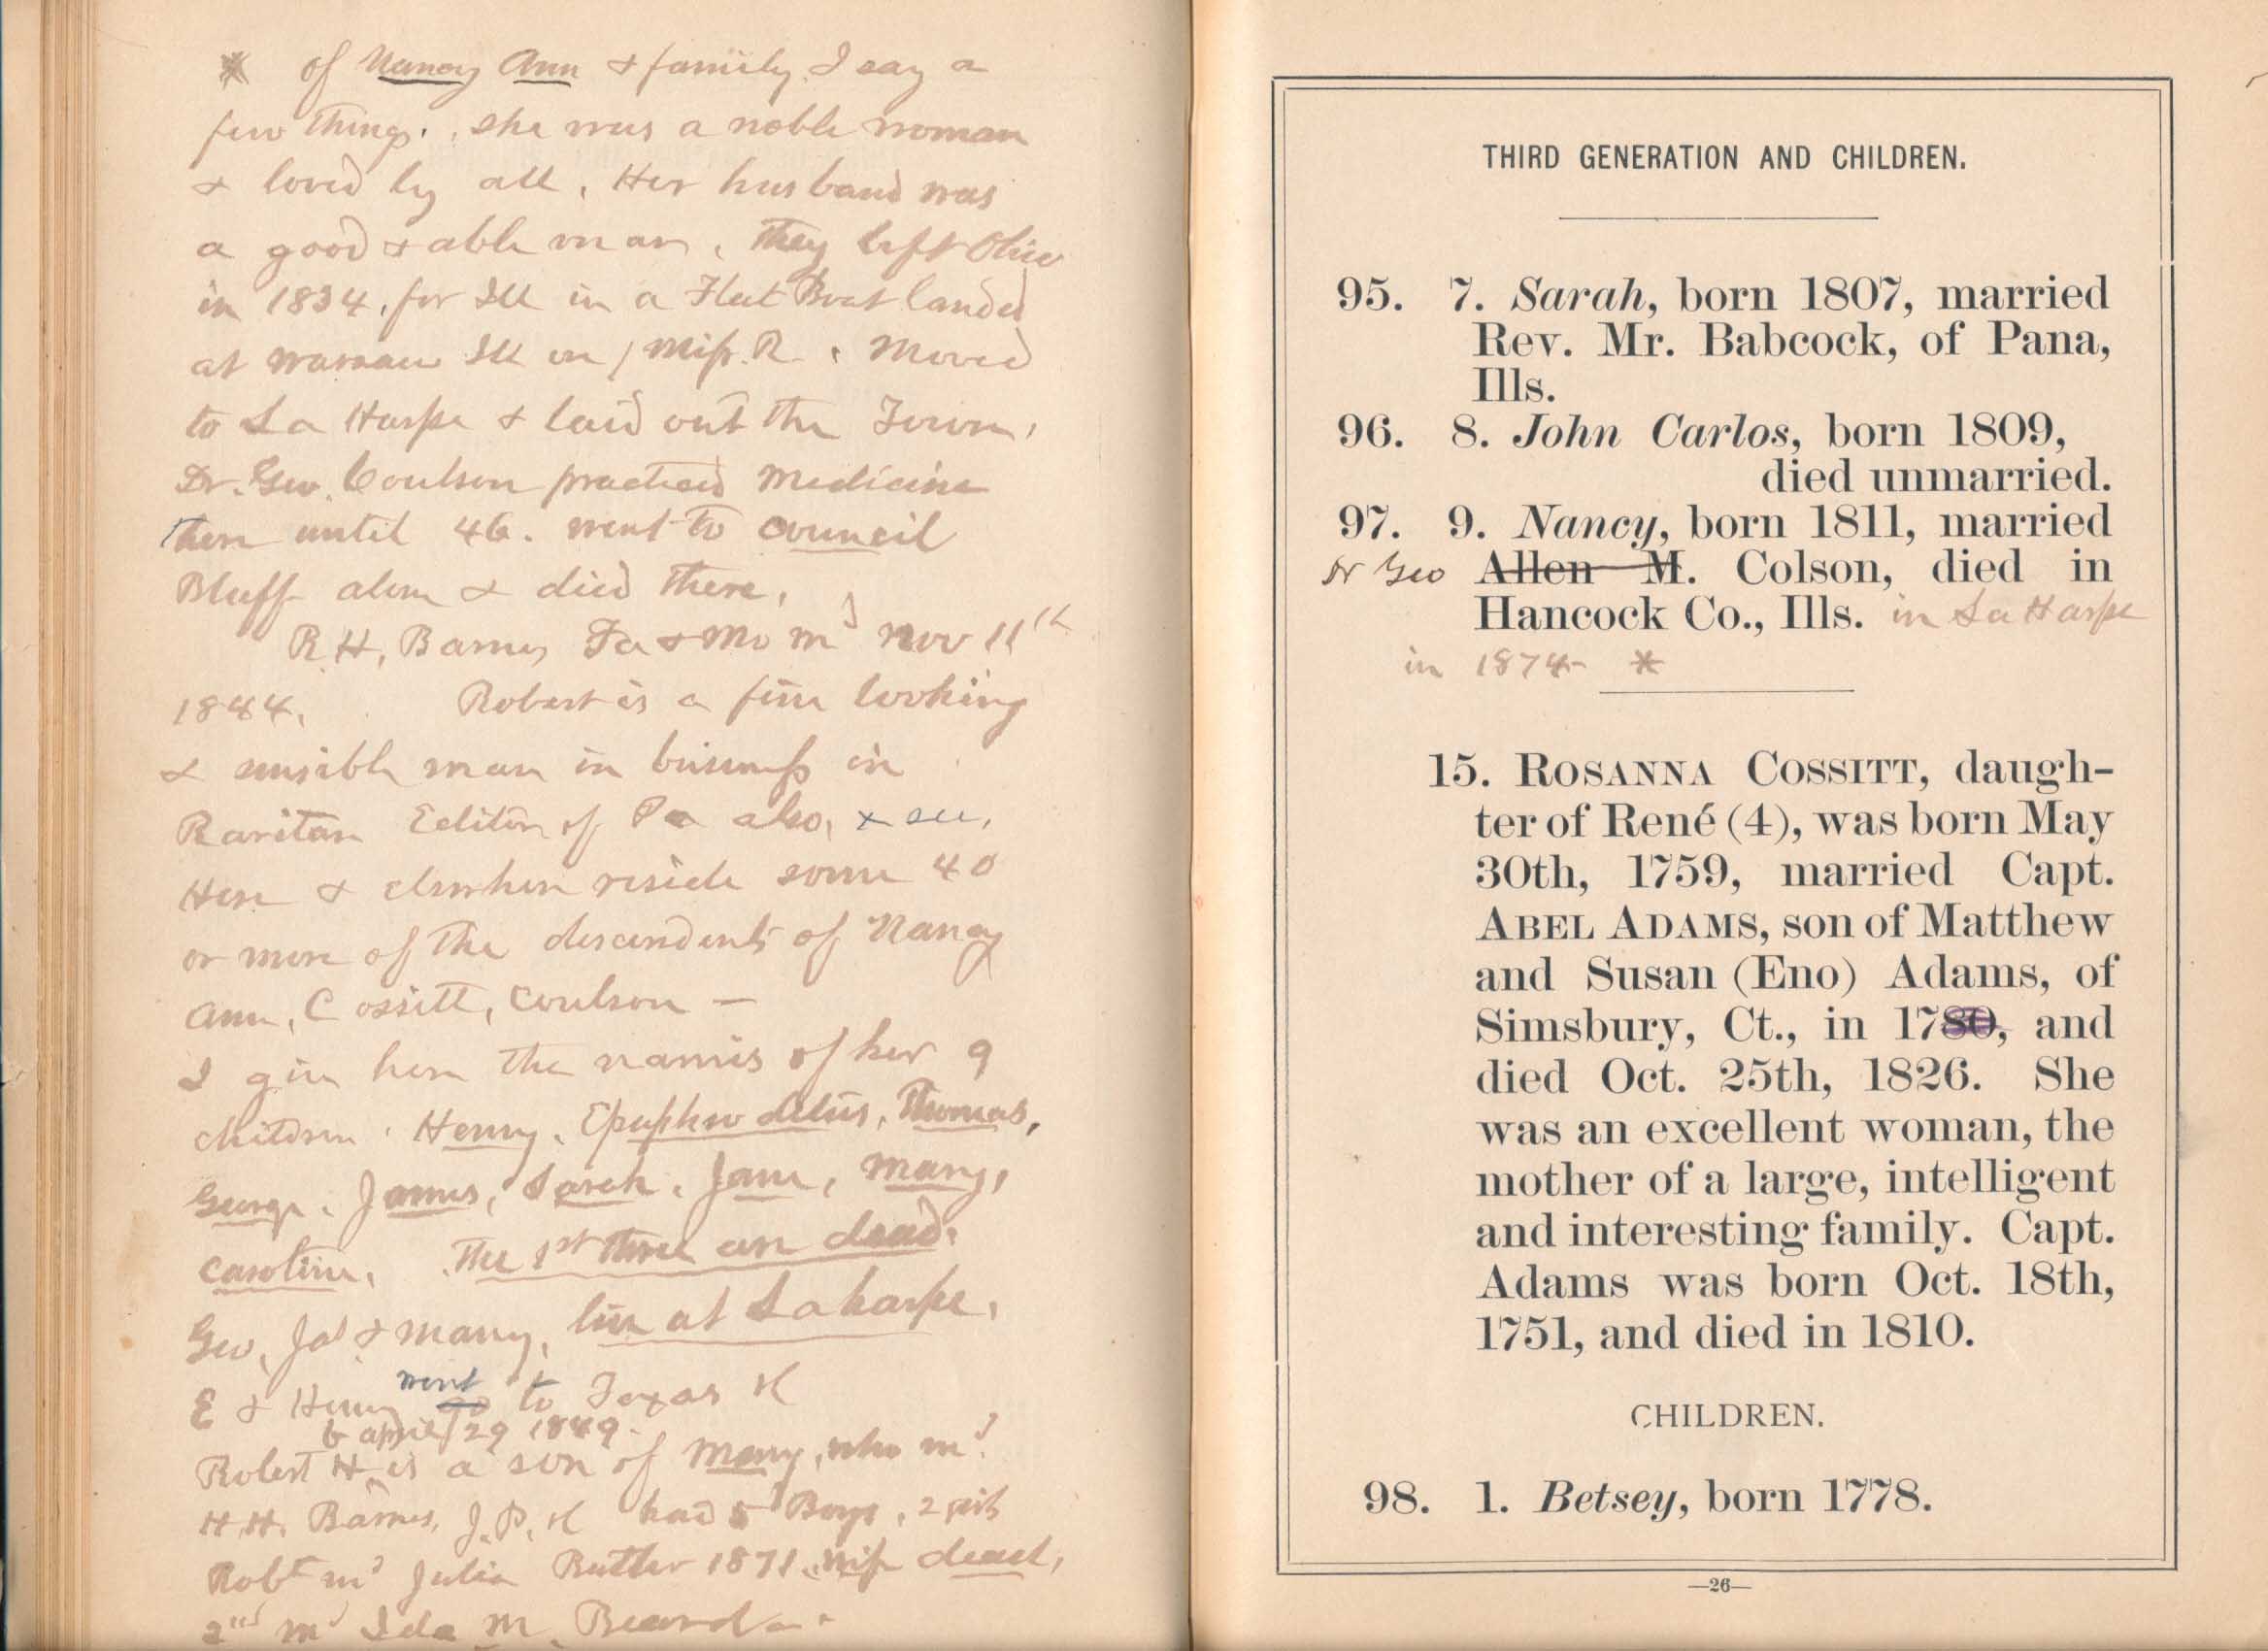 * of Nancy Ann & family I say a
few things. she was a noble woman
& loved by all, Her husband was
a good & able man. They left Ohio
in 1834, for Ill in a Flat Boat landed
at Warsaw Ill on Miss. R. Moved
to La Harpe & laid out the Town,
Dr. Geo. Coulson practiced Medicine
there until 46. went to Council
Bluff alone & died there,
R H, Barnes Fa & Mo md Nov 11th
1844. Robert is a fine looking
& sensible man in business in
Raritan Editor of Pa also, &
Here & elsewhere reside some 40
or more of the descendents of Nancy
Ann, Cossitt, Coulson —
I give here the names of her 9
children. Henry, Epaphroditus, Thomas,
George, James, Sarah, Jane, Mary,
Caroline, The 1st three are dead.
Geo, Jas & Mary, live at Laharpe,
E & Henry went to Texas
b april 29 1849.
Robert H is a son of Mary, who md
H.H. Barnes, J.P. had 5 Boys, 2
Robt md Julia Butler 1871. Wife dead,
2nd md Ida M. Beard
THIRD GENERATION AND CHILDREN.
95. 7. Sarah, born 1807, married
Rev. Mr. Babcock, of Pana,
Ills.
96. 8. John Carlos, born 1809,
died unmarried.
97. 9. Nancy, born 1811, married
Dr Geo Allen M. Colson, died in
Hancock Co., Ills. in La Harpe
in 1874 *
15. ROSANNA COSSITT, daugh-
ter of René (4), was born May
30th, 1759, married Capt.
ABEL ADAMS, son of Matthew
and Susan (Eno) Adams, of
Simsbury, Ct., in 1780, and
died Oct. 25th, 1826. She
was an excellent woman, the
mother of a large, intelligent
and interesting family. Capt.
Adams was born Oct. 18th,
1751, and died in 1810.
CHILDREN.
98. 1. Betsey, born 1778.
—26—